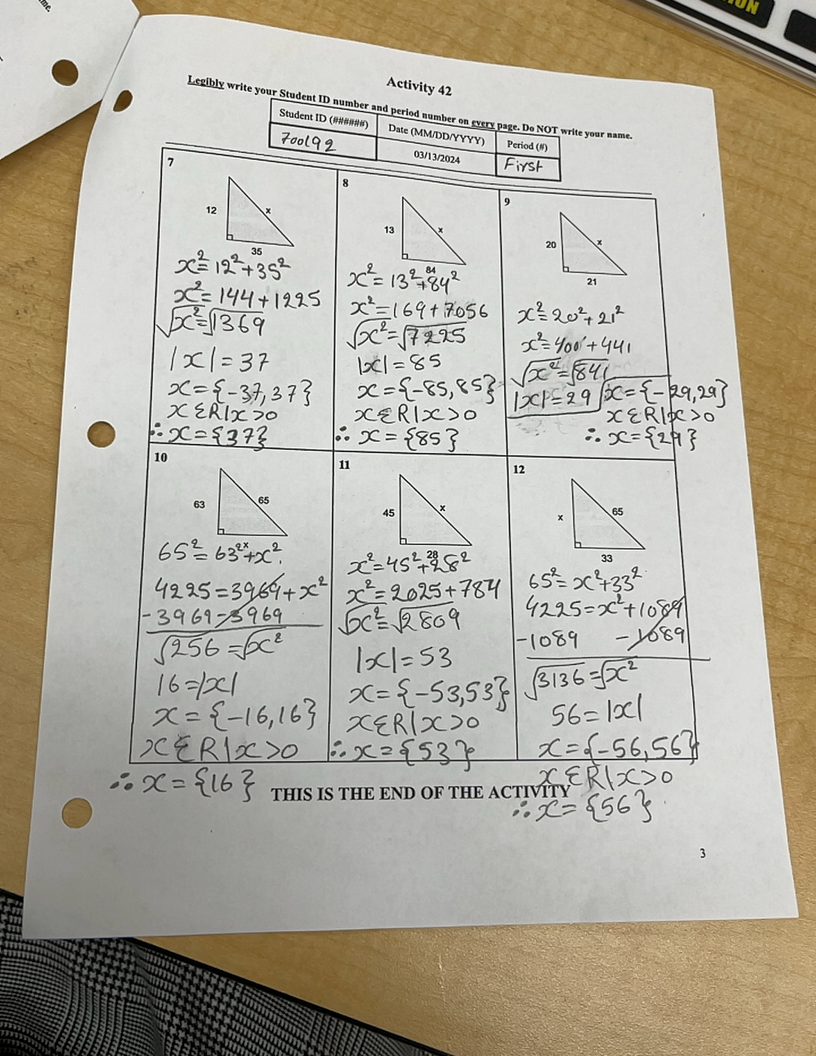 Activity 42
Legibly write your Student ID number and period number on every page. Do NOT write your name.
Student ID (######)
Date (MM/DD/YYYY)
Period (#)
700192
03/13/2024
First
7
12
x
35
x²=12²+35²
x²=144+1225
√x²=√1369
|x|=37
x={-37,37}
xƐR|x>0
∴x={37}
8
13
x
84
x²=13²+84²
x²=169+7056
√x²=√7225
|x|=85
x={-85,85}
xƐR|x>0
∴x={85}
9
20
x
21
x²=20²+21²
x²=400+441
√x²=√841
|x|=29
x={-29,29}
xƐR|x>0
∴x={29}
10
63
65
x
65²=63²+x²
4225=3969+x²
-3969-3969
√256=√x²
16=|x|
x={-16,16}
xƐR|x>0
∴x={16}
11
45
x
28
x²=45²+28²
x²=2025+784
√x²=√2809
|x|=53
x={-53,53}
xƐR|x>0
∴x={53}
12
x
65
33
65²=x²+33²
4225=x²+1089
-1089 -1089
√3136=√x²
56=|x|
x={-56,56}
xƐR|x>0
∴x={56}
THIS IS THE END OF THE ACTIVITY
3